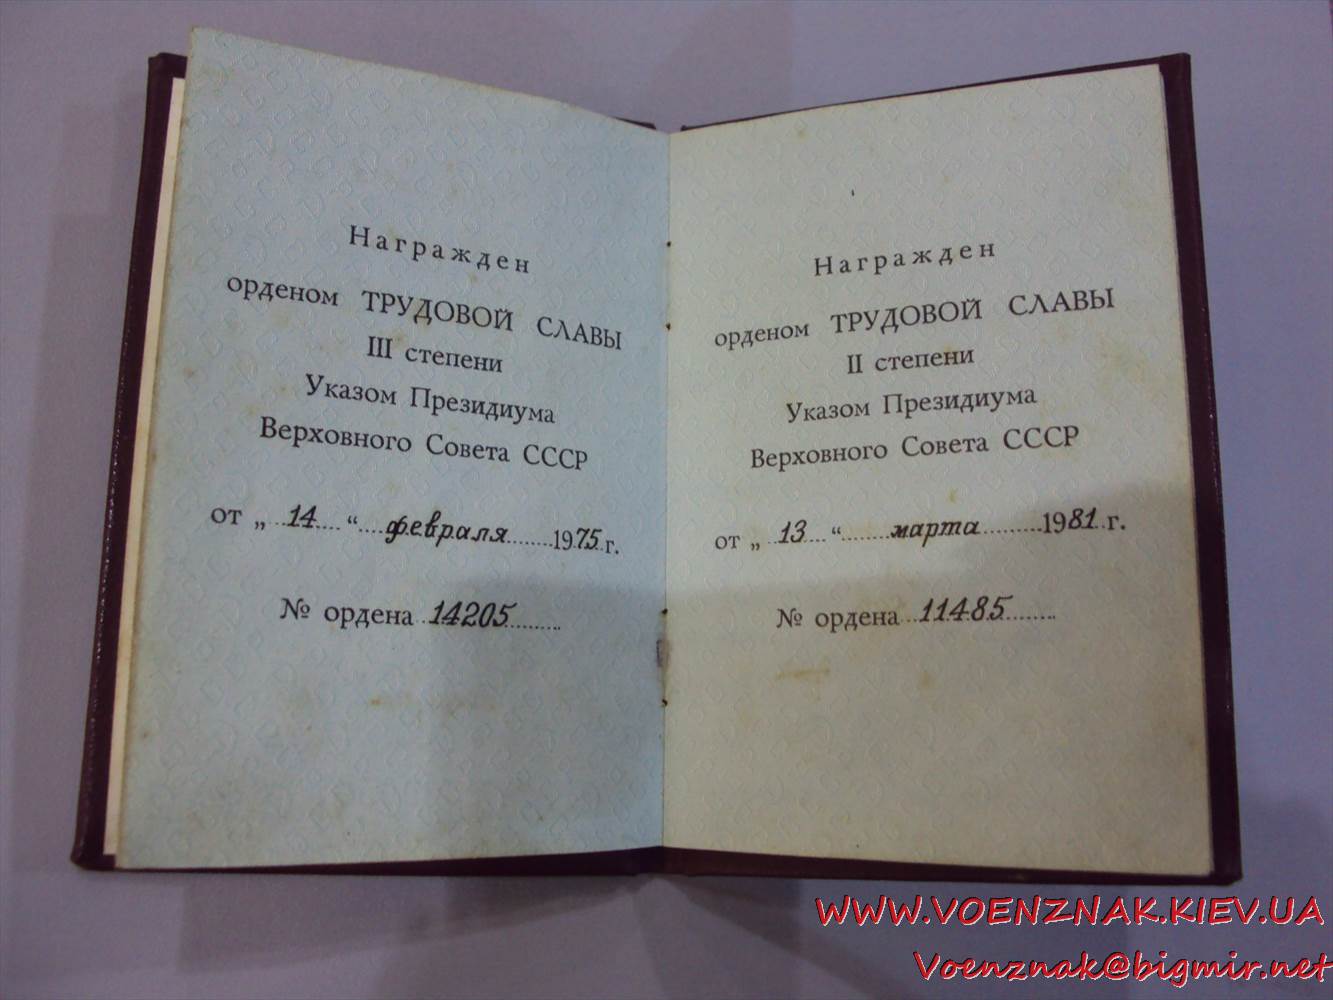 Награжден
орденом ТРУДОВОЙ СЛАВЫ
III степени
Указом Президиума
Верховного Совета СССР
от „ 14 “ февраля 1975 г.
№ ордена 14205
Награжден
орденом ТРУДОВОЙ СЛАВЫ
II степени
Указом Президиума
Верховного Совета СССР
от „ 13 “ марта 1981 г.
№ ордена 11485
WWW.VOENZNAK.KIEV.UA
Voenznak@bigmir.net